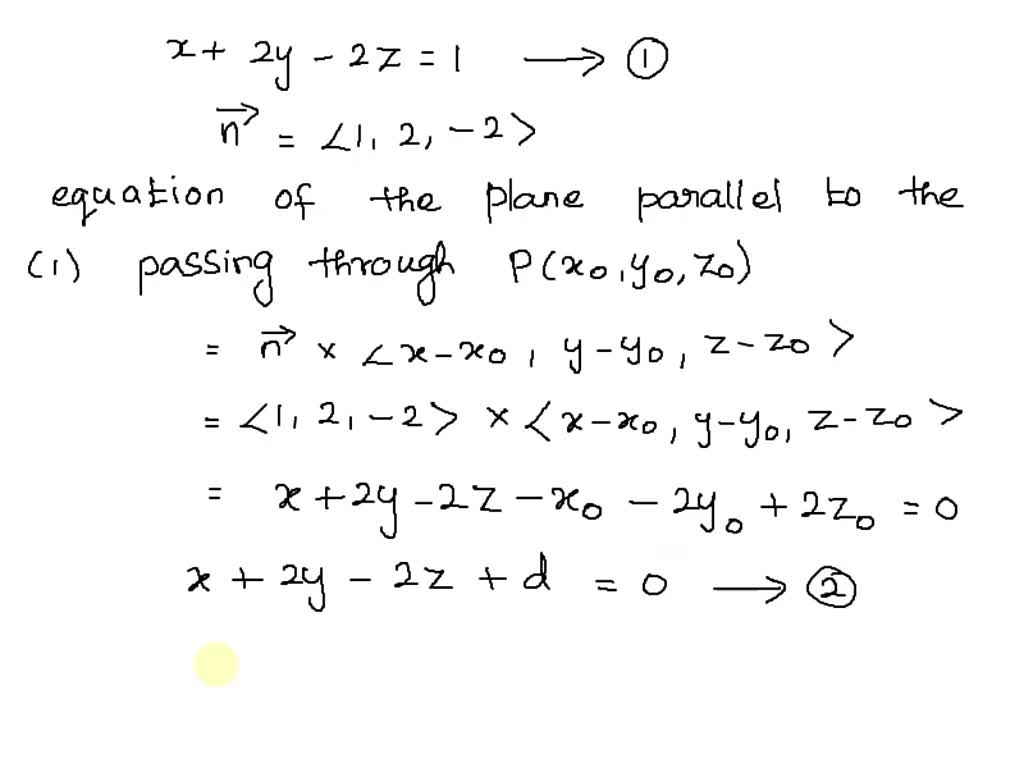 x + 2y - 2z = 1 ⟶ ①
n⃗ = <1, 2, -2>
equation of the plane parallel to the
(1) passing through P(x₀, y₀, z₀)
= n⃗ × <x-x₀, y-y₀, z-z₀>
= <1, 2, -2> × <x-x₀, y-y₀, z-z₀>
= x + 2y - 2z - x₀ - 2y₀ + 2z₀ = 0
x + 2y - 2z + d = 0 ⟶ ②